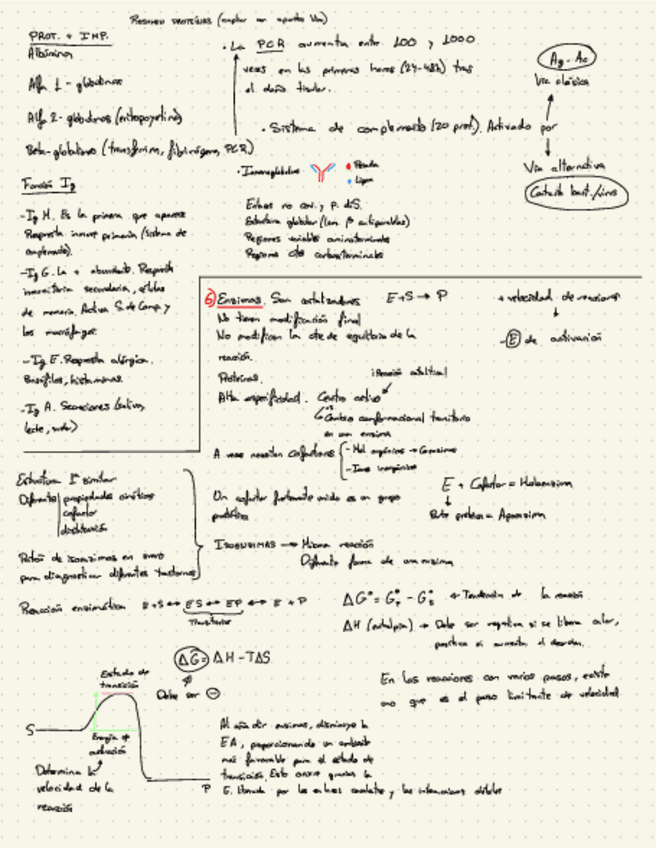 Resumen proteínas (ampliar con apuntes Vane)
PROT. + IMP.
Albúmina
Alfa 1 - globulinas
Alfa 2 - globulinas (eritropoyetina)
Beta-globulinas (transferrina, fibrinógeno, PCR)
· La PCR aumenta entre 100 y 1000
veces en las primeras horas (24-48h) tras
el daño tisular.
· Sistema de complemento (20 prot.). Activado por
Ag - Ac
Vía clásica
Vía alternativa
Contacto bact./virus
· Inmunoglobulinas
Pesada
Ligera
Enlaces no cov. y p. dS.
Estructura globular
Regiones variables aminoterminales
Regiones ctes carboxiterminales
Función Ig
- Ig M. Es la primera que aparece
Respuesta inmune primaria (sistema de
complemento).
- Ig G. La + abundante. Respuesta
inmunitaria secundaria, células
de memoria. Activa S. de Comp. y
los macrófagos.
- Ig E. Respuesta alérgica.
Basófilos, histaminas.
- Ig A. Secreciones (saliva,
leche, sudor)
6) Enzimas. Son catalizadores E+S → P
No tienen modificación final
No modifican la cte de equilibrio de la
reacción.
Proteínas.
Alta especificidad. Centro activo
¡Reacción catalítica!
Cambio conformacional transitorio
en una enzima
+ velocidad de reacciones
- E de activación
A veces necesitan cofactores
- Mol. orgánicas → Coenzimas
- Iones inorgánicos
Un cofactor fuertemente unido es un grupo
prostético
E + Cofactor = Holoenzima
Parte proteica = Apoenzima
Estructura 1ª similar
Diferente propiedades cinéticas
cofactor
distribución
Patrón de isoenzimas en suero
para diagnosticar diferentes trastornos
ISOENZIMAS → Misma reacción
Diferente forma de una enzima
Reacción enzimática E+S ↔ ES ↔ EP ↔ E + P
Transitorios
ΔG = ΔH - TΔS
Debe ser ⊖
ΔH (entalpía) → Debe ser negativa si se libera calor,
positiva si aumenta el desorden.
En las reacciones con varios pasos, existe
uno que es el paso limitante de velocidad
Estado de
transición
S
Energía de
activación
Determina la
velocidad de la
reacción
P
Al añadir enzimas, disminuye la
EA, proporcionando un ambiente
más favorable para el estado de
transición. Esto ocurre gracias la
E. liberada por los enlaces covalentes y las interacciones débiles